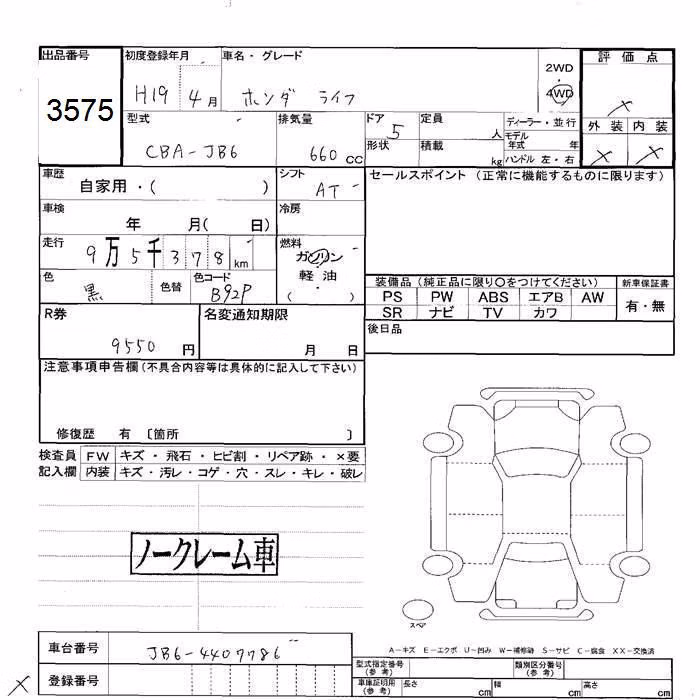 出品番号
3575
初度登録年月
H19 4月
車名・グレード
ホンダ ライフ
2WD
・
4WD
評価点
×
外装 内装
× ×
型式
CBA-JB6
排気量
660 CC
ドア
5
形状
定員
人
積載
kg
ディーラー・並行
モデル
年式 年
ハンドル 左・右
車歴
自家用・( )
シフト
AT
セールスポイント (正常に機能するものに限ります)
車検
年 月( 日)
冷房
走行
9万5千378km
燃料
ガソリン
・
軽油
( )
色
黒
色替
色コード
B92P
装備品 (純正品に限り○をつけてください)
新車保証書
PS PW ABS エアB AW
SR ナビ TV カワ
有・無
R券
9550 円
名変通知期限
月 日
後日品
注意事項申告欄(不具合内容等は具体的に記入して下さい)
修復歴 有 〔箇所 〕
検査員 FW キズ・飛石・ヒビ割・リペア跡・×要
記入欄 内装 キズ・汚レ・コゲ・穴・スレ・キレ・破レ
ノークレーム車
スペア
A-キズ E-エクボ U-凹み W-補修跡 S-サビ C-腐食 XX-交換済
車台番号
JB6-4409786
登録番号
×
型式指定番号
(参考)
類別区分番号
(参考)
車庫証明用
(参考)
長さ cm 幅 cm 高さ cm